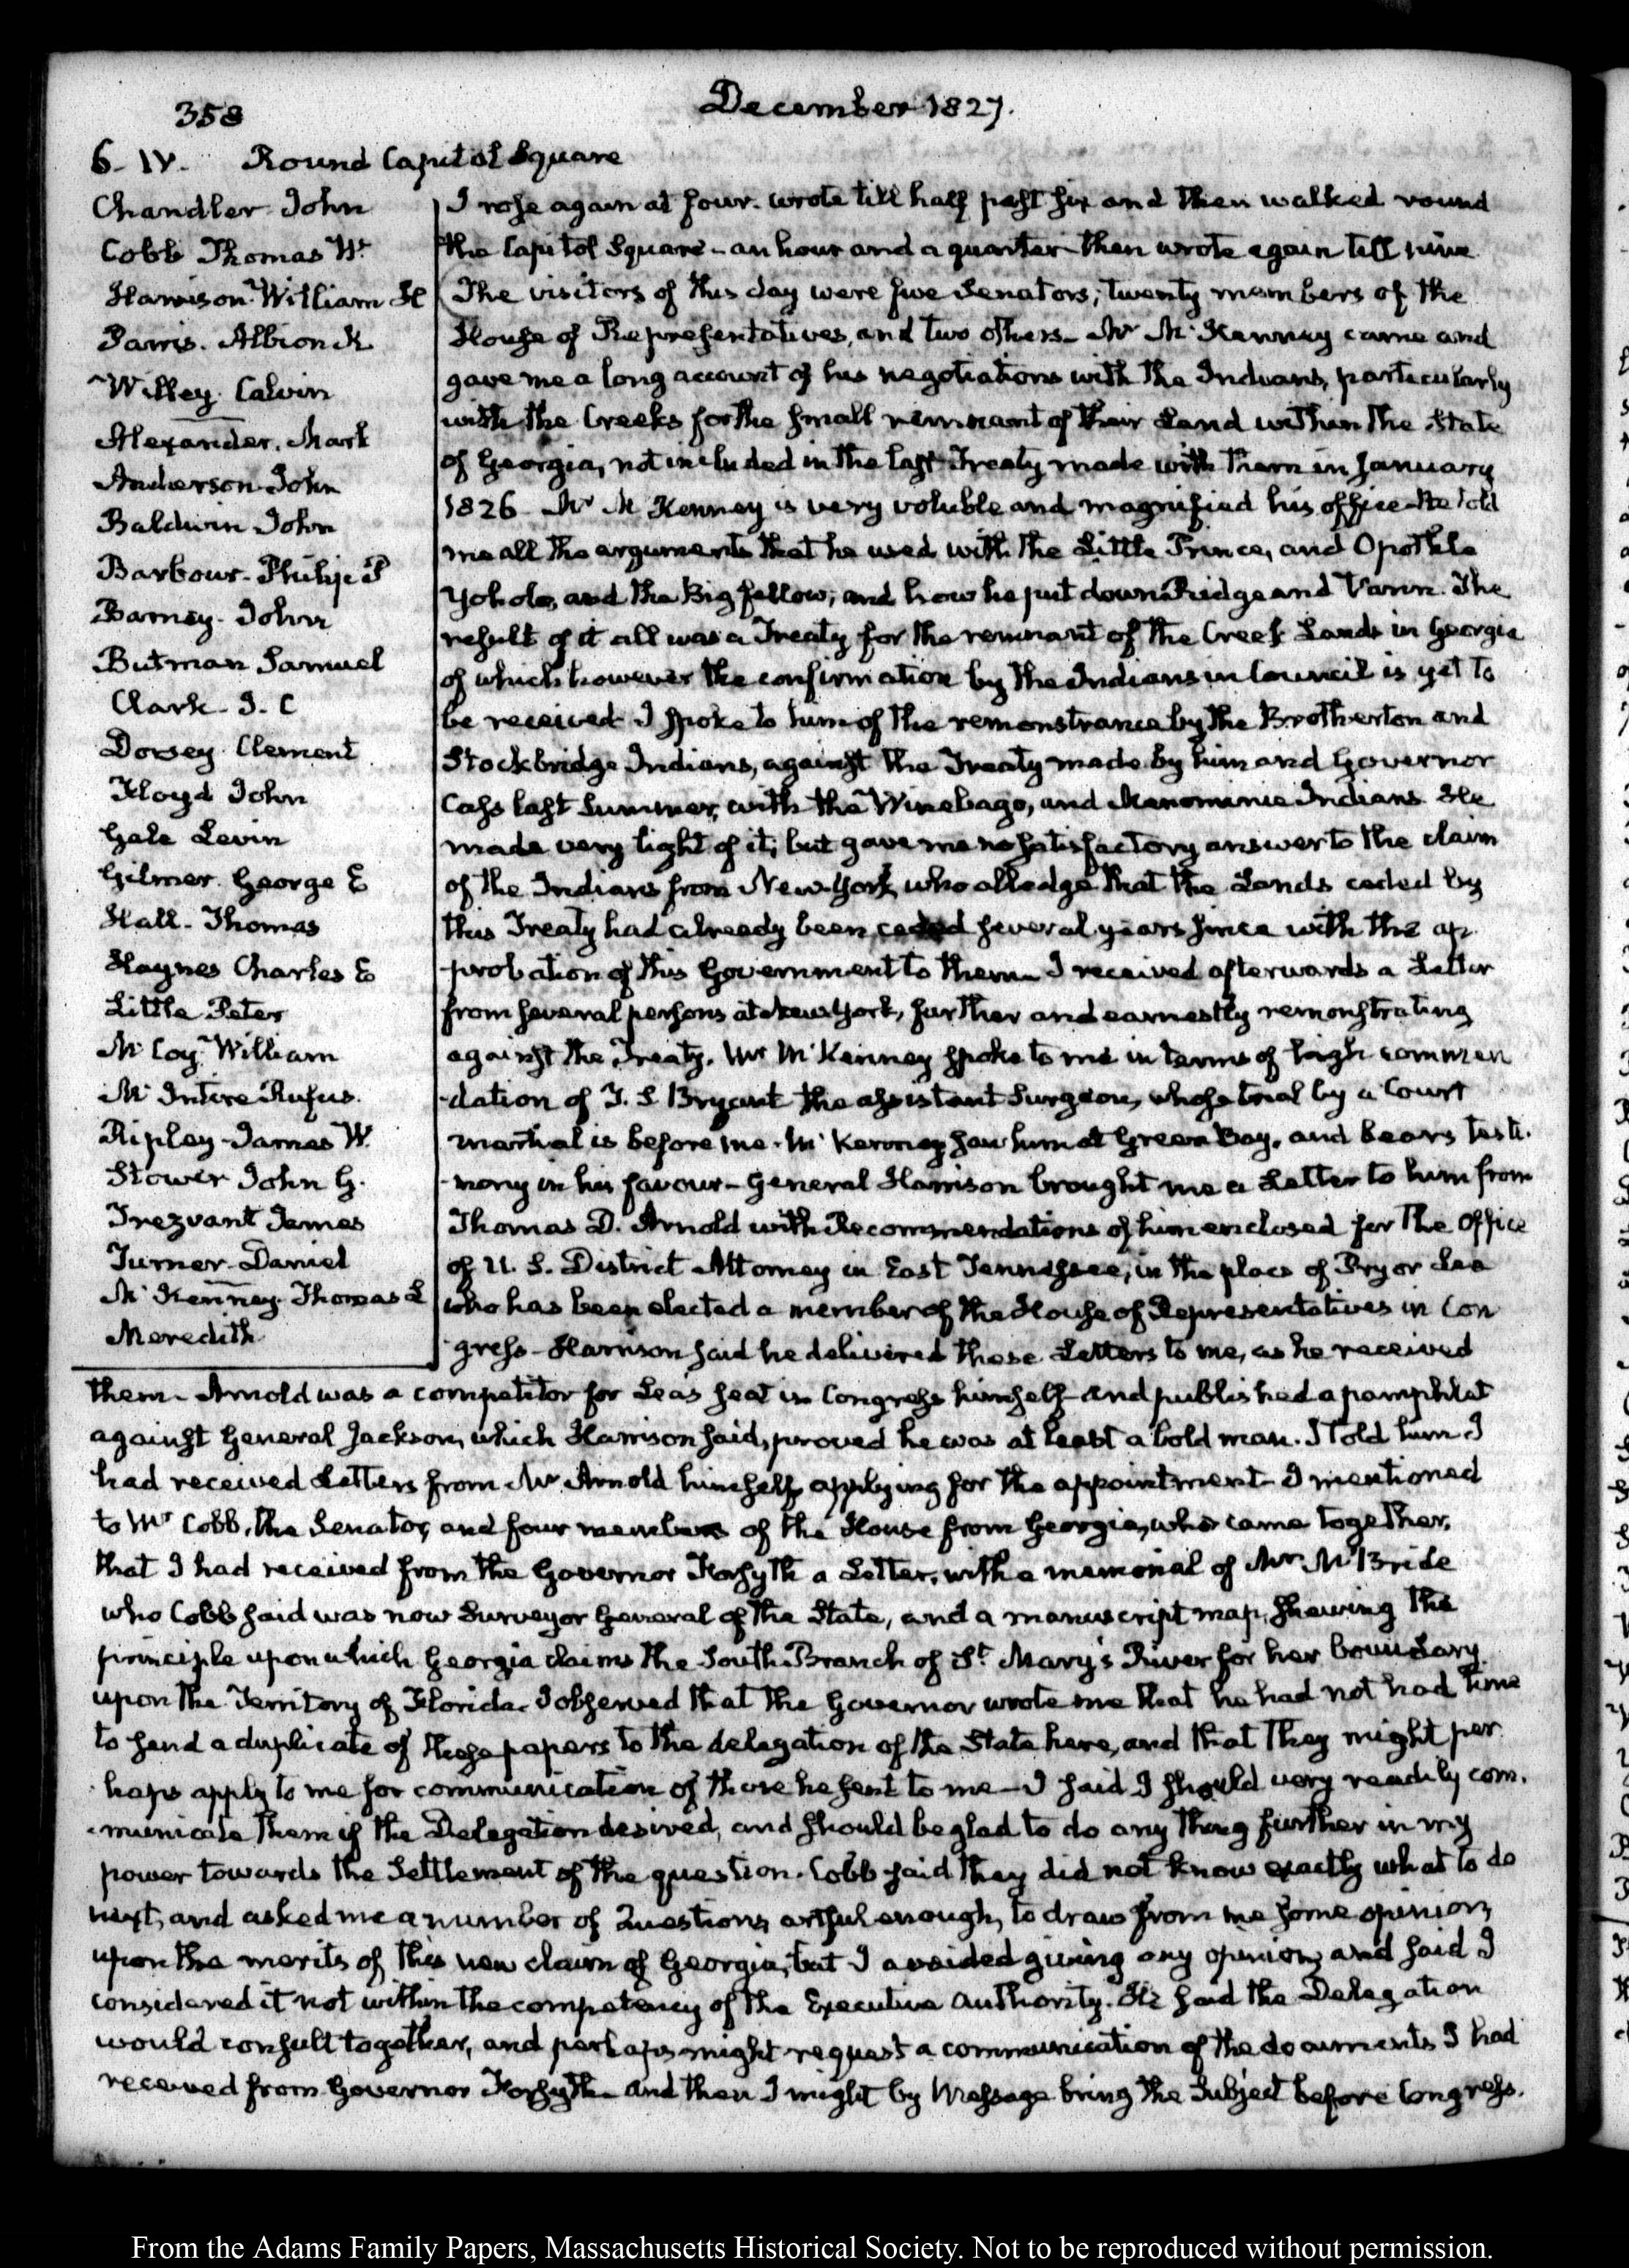 358
December 1827.
6. IV. Round Capitol Square
Chandler John
Cobb Thomas W.
Harrison William H
Parris. Albion K
Willey Calvin
Alexander. Mark
Anderson John
Baldwin John
Barbour. Philip P
Barney. John
Butman Samuel
Clark. J. C
Dorsey Clement
Floyd John
Gale Levin
Gilmer George E
Hall. Thomas
Haynes Charles E
Little Peter
McCoy William
McIntire Rufus.
Ripley James W.
Stower John G.
Trezvant James
Turner. Daniel
McKenney Thomas L
Meredith
I rose again at four. wrote till half past six and then walked round
the Capitol Square – an hour and a quarter then wrote again till nine
The visitors of this day were five Senators, twenty members of the
House of Representatives, and two others – Mr McKenney came and
gave me a long account of his negotiations with the Indians, particularly
with the Creeks for the small remnant of their Land within the State
of Georgia, not included in the last Treaty made with them in January
1826 – Mr McKenney is very voluble and magnified his office – He told
me all the arguments that he used with the Little Prince, and Opothle
Yoholo, and the Big fellow; and how he put down Ridge and Vann. The
result of it all was a Treaty for the remnant of the Creek Lands in Georgia
of which however the confirmation by the Indians in Council is yet to
be received – I spoke to him of the remonstrance by the Brotherton and
Stockbridge Indians, against the Treaty made by him and Governor
Cass last Summer, with the Winebago, and Menominie Indians. He
made very light of it; but gave me no satisfactory answer to the claim
of the Indians from New York, who alledge that the Lands ceded by
this Treaty had already been ceded several years since with the ap
probation of this Government to them – I received afterwards a Letter
from several persons at New York, further and earnestly remonstrating
against the Treaty. Mr McKenney spoke to me in terms of high commen
-dation of T. S Bryant the assistant Surgeon, whose trial by a Court
martial is before me. McKenney saw him at Green Bay, and bears testi.
-mony in his favour – General Harrison brought me a Letter to him from
Thomas D. Arnold with Recommendations of him enclosed for the Office
of U. S. District Attorney in East Tennessee, in the place of Pryor Lea
who has been elected a member of the House of Representatives in Con
-gress – Harrison said he delivered these Letters to me, as he received
them – Arnold was a competitor for Lea's seat in Congress himself and published a pamphlet
against General Jackson, which Harrison said, proved he was at least a bold man. I told him I
had received Letters from Mr Arnold himself, applying for the appointment – I mentioned
to Mr Cobb, the Senator, and four members of the House from Georgia, who came together,
that I had received from the Governor Forsyth a Letter, with a memorial of Mr McBride
who Cobb said was now Surveyor General of the State, and a manuscript map, shewing the
principle upon which Georgia claims the South Branch of St Mary's River for her boundary
upon the Territory of Florida. I observed that the Governor wrote me that he had not had time
to send a duplicate of these papers to the delegation of the State here, and that they might per
-haps apply to me for communication of those he sent to me – I said I should very readily com.
-municate them if the Delegation desired, and should be glad to do any thing further in my
power towards the Settlement of the question. Cobb said they did not know exactly what to do
next, and asked me a number of Questions artful enough, to draw from me some opinion,
upon the merits of this new claim of Georgia, but I avoided giving any opinion, and said I
considered it not within the competency of the Executive authority. He said the Delegation
would consult together, and perhaps might request a communication of the documents I had
received from Governor Forsyth – and then I might by Message bring the Subject before Congress.
From the Adams Family Papers, Massachusetts Historical Society. Not to be reproduced without permission.